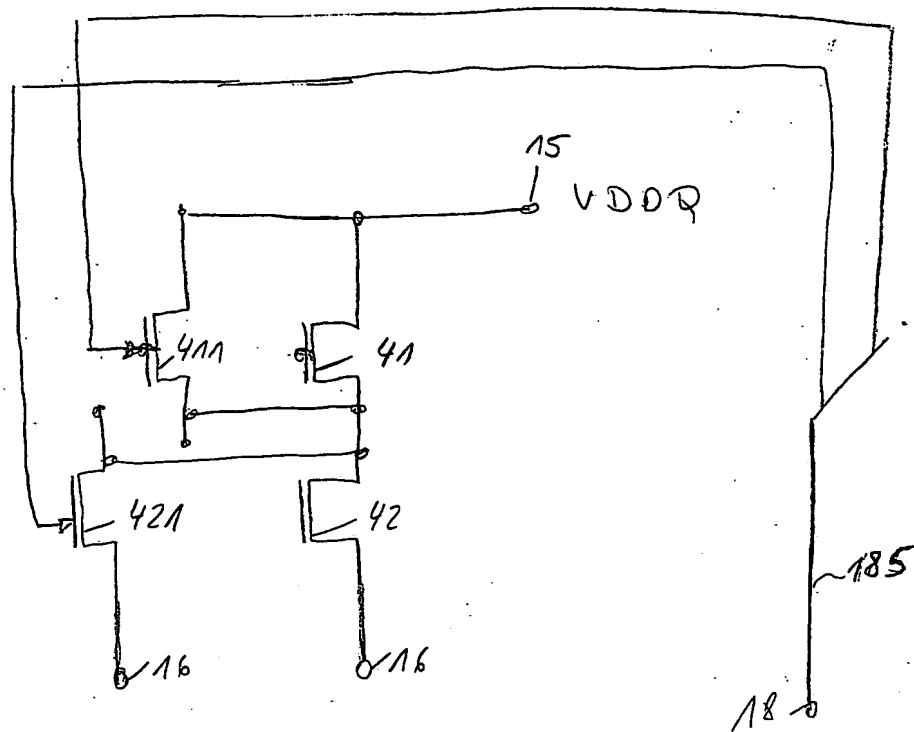 15
VDDQ
411
41
421
42
185
16
16
18